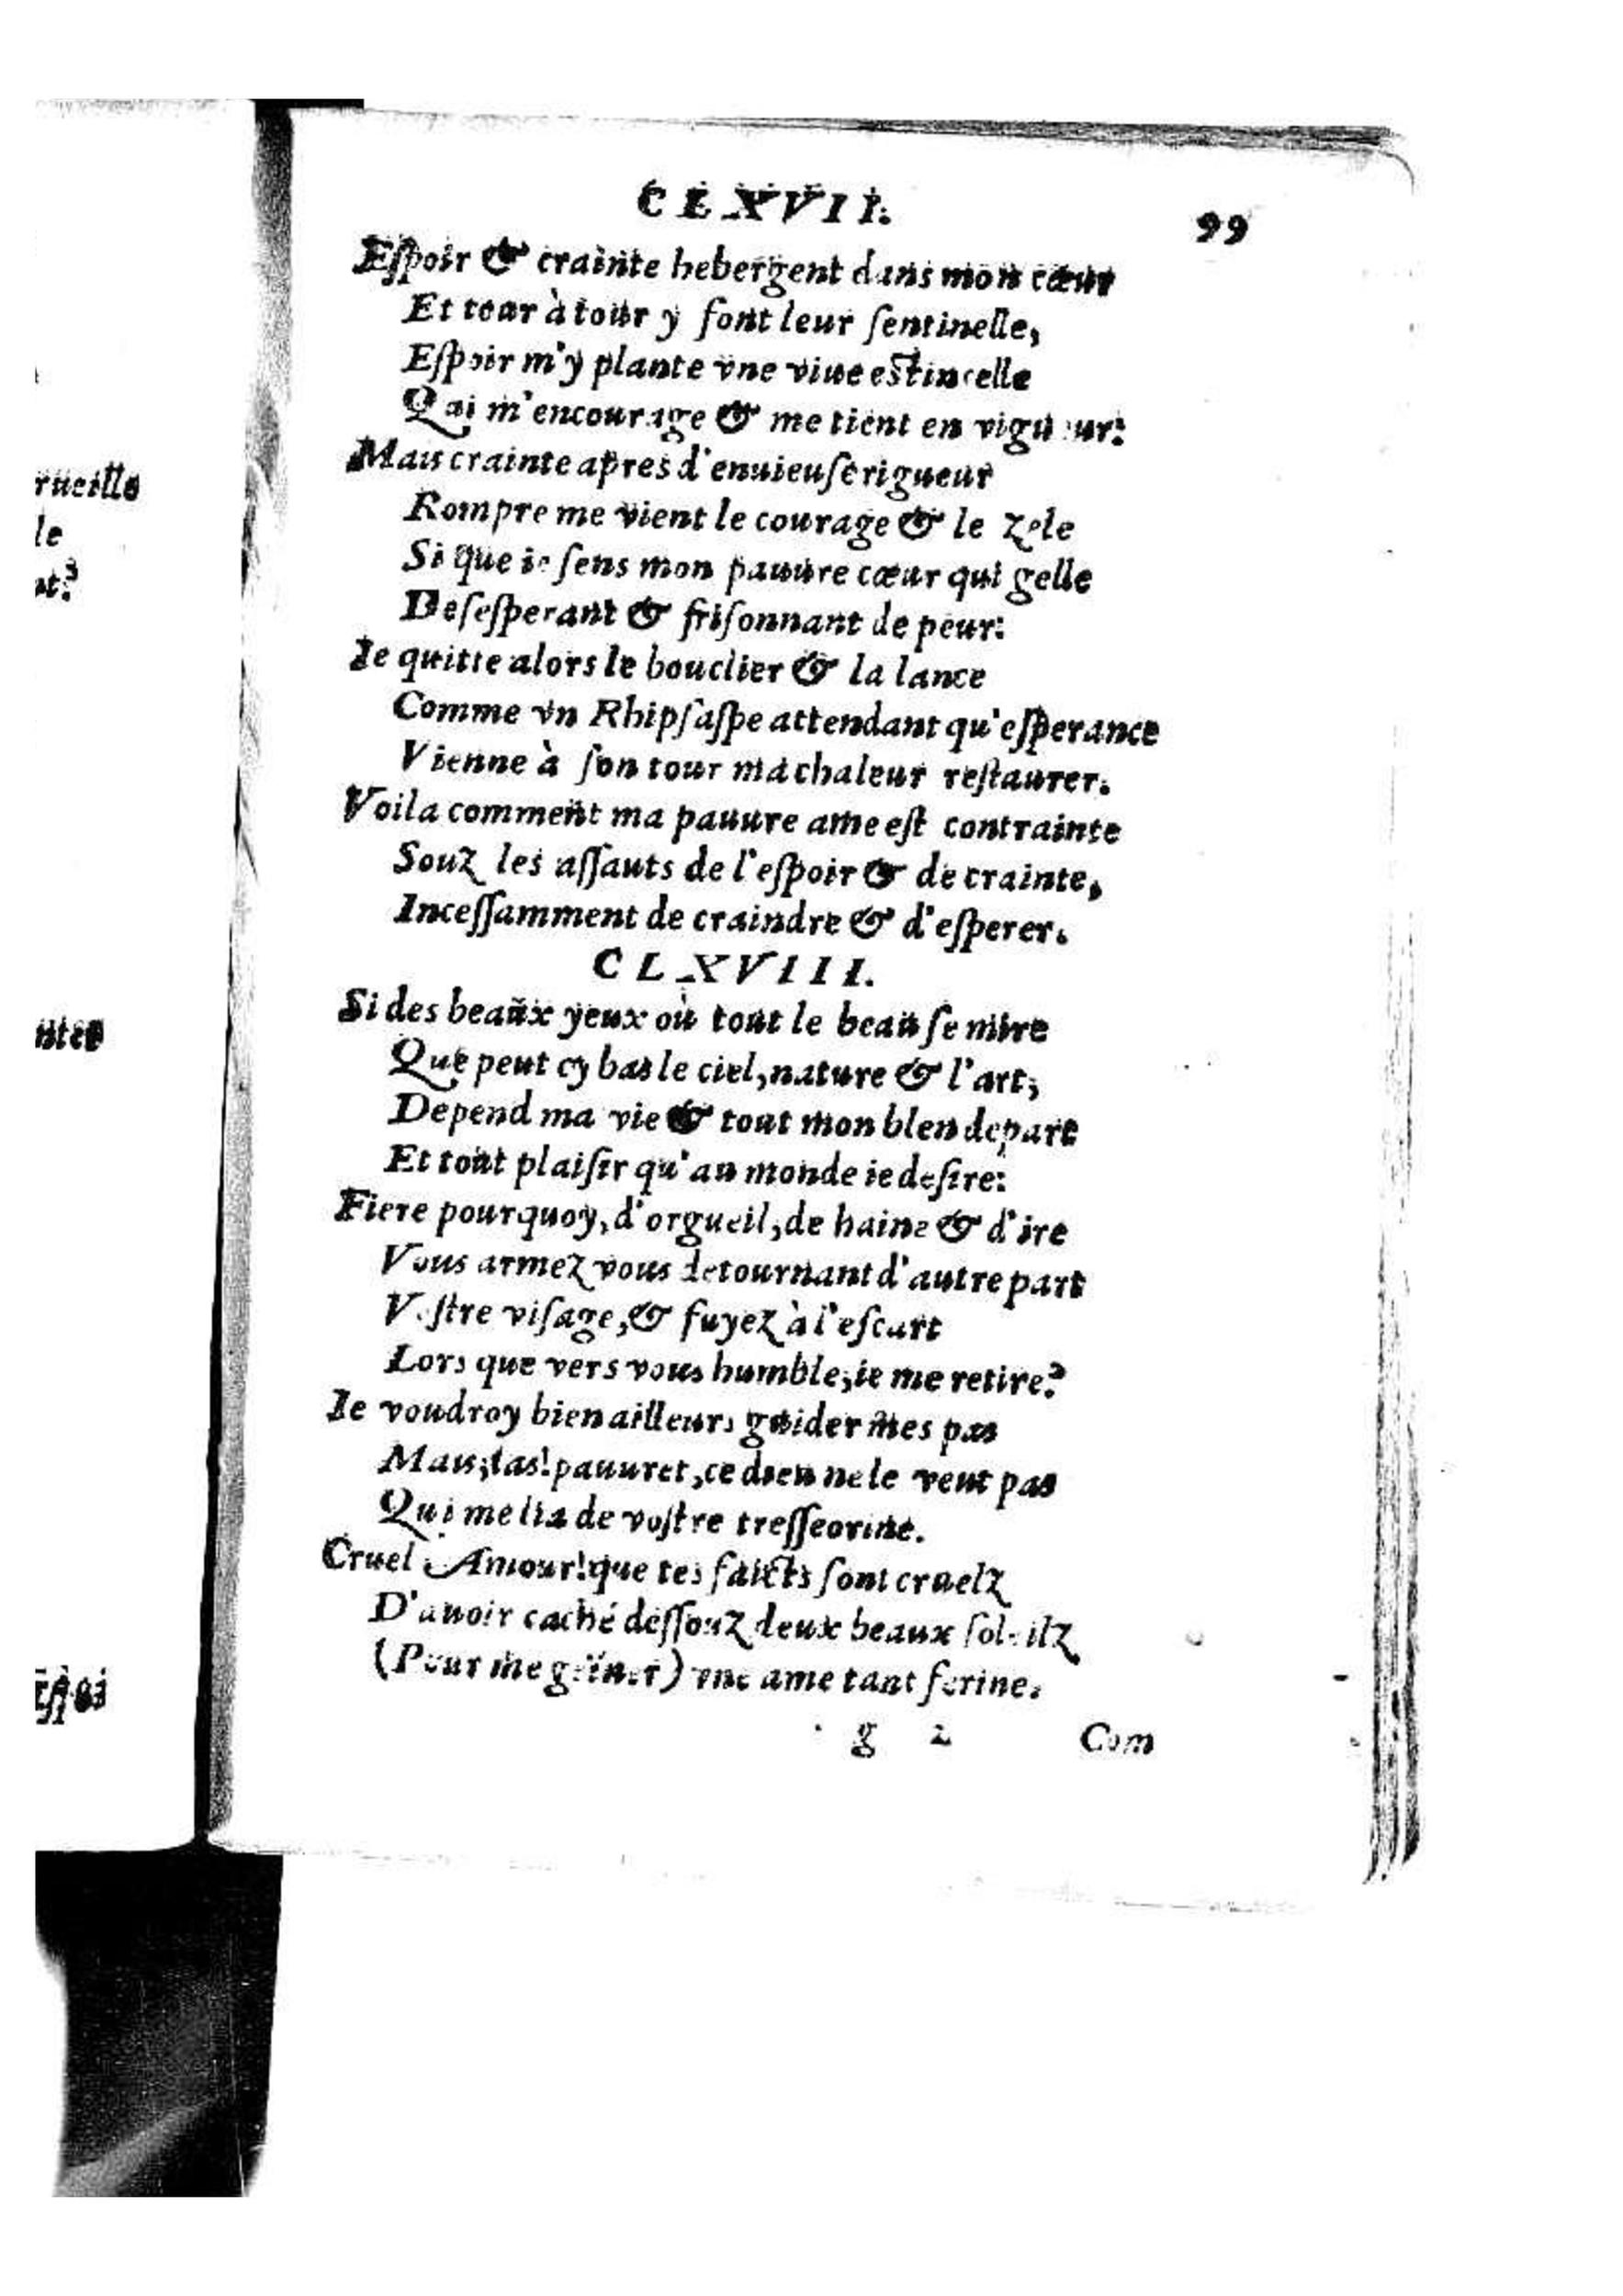 CLXVII.
99
Eſpoir & crainte hebergent dans mon cœur
Et tour à tour y font leur ſentinelle,
Eſpoir m'y plante vne viue estincelle
Qui m'encourage & me tient en vigueur:
Mais crainte apres d'enuieuſe rigueur
Rompre me vient le courage & le zele
Si que ie ſens mon pauure cœur qui gelle
Deſeſperant & friſonnant de peur:
Ie quitte alors le bouclier & la lance
Comme vn Rhipſaſpe attendant qu'eſperance
Vienne à ſon tour ma chaleur reſtaurer.
Voila comment ma pauure ame eſt contrainte
Souz les aſſauts de l'eſpoir & de crainte,
Inceſſamment de craindre & d'eſperer.
CLXVIII.
Si des beaux yeux où tout le beau ſe mire
Que peut cy bas le ciel, nature & l'art,
Depend ma vie & tout mon bien depart
Et tout plaiſir qu'au monde ie deſire:
Fiere pourquoy, d'orgueil, de haine & d'ire
Vous armez vous detournant d'autre part
Voſtre viſage, & fuyez à l'eſcart
Lors que vers vous humble, ie me retire?
Ie voudroy bien ailleurs guider mes pas
Mais, las! pauuret, ce dieu ne le veut pas
Qui me lia de voſtre treſſe orine.
Cruel Amour! que tes faicts ſont cruelz
D'auoir caché deſſouz deux beaux ſoleilz
(Pour me geiner) vne ame tant ferine.
g 2 Com
rueille
le
nt?